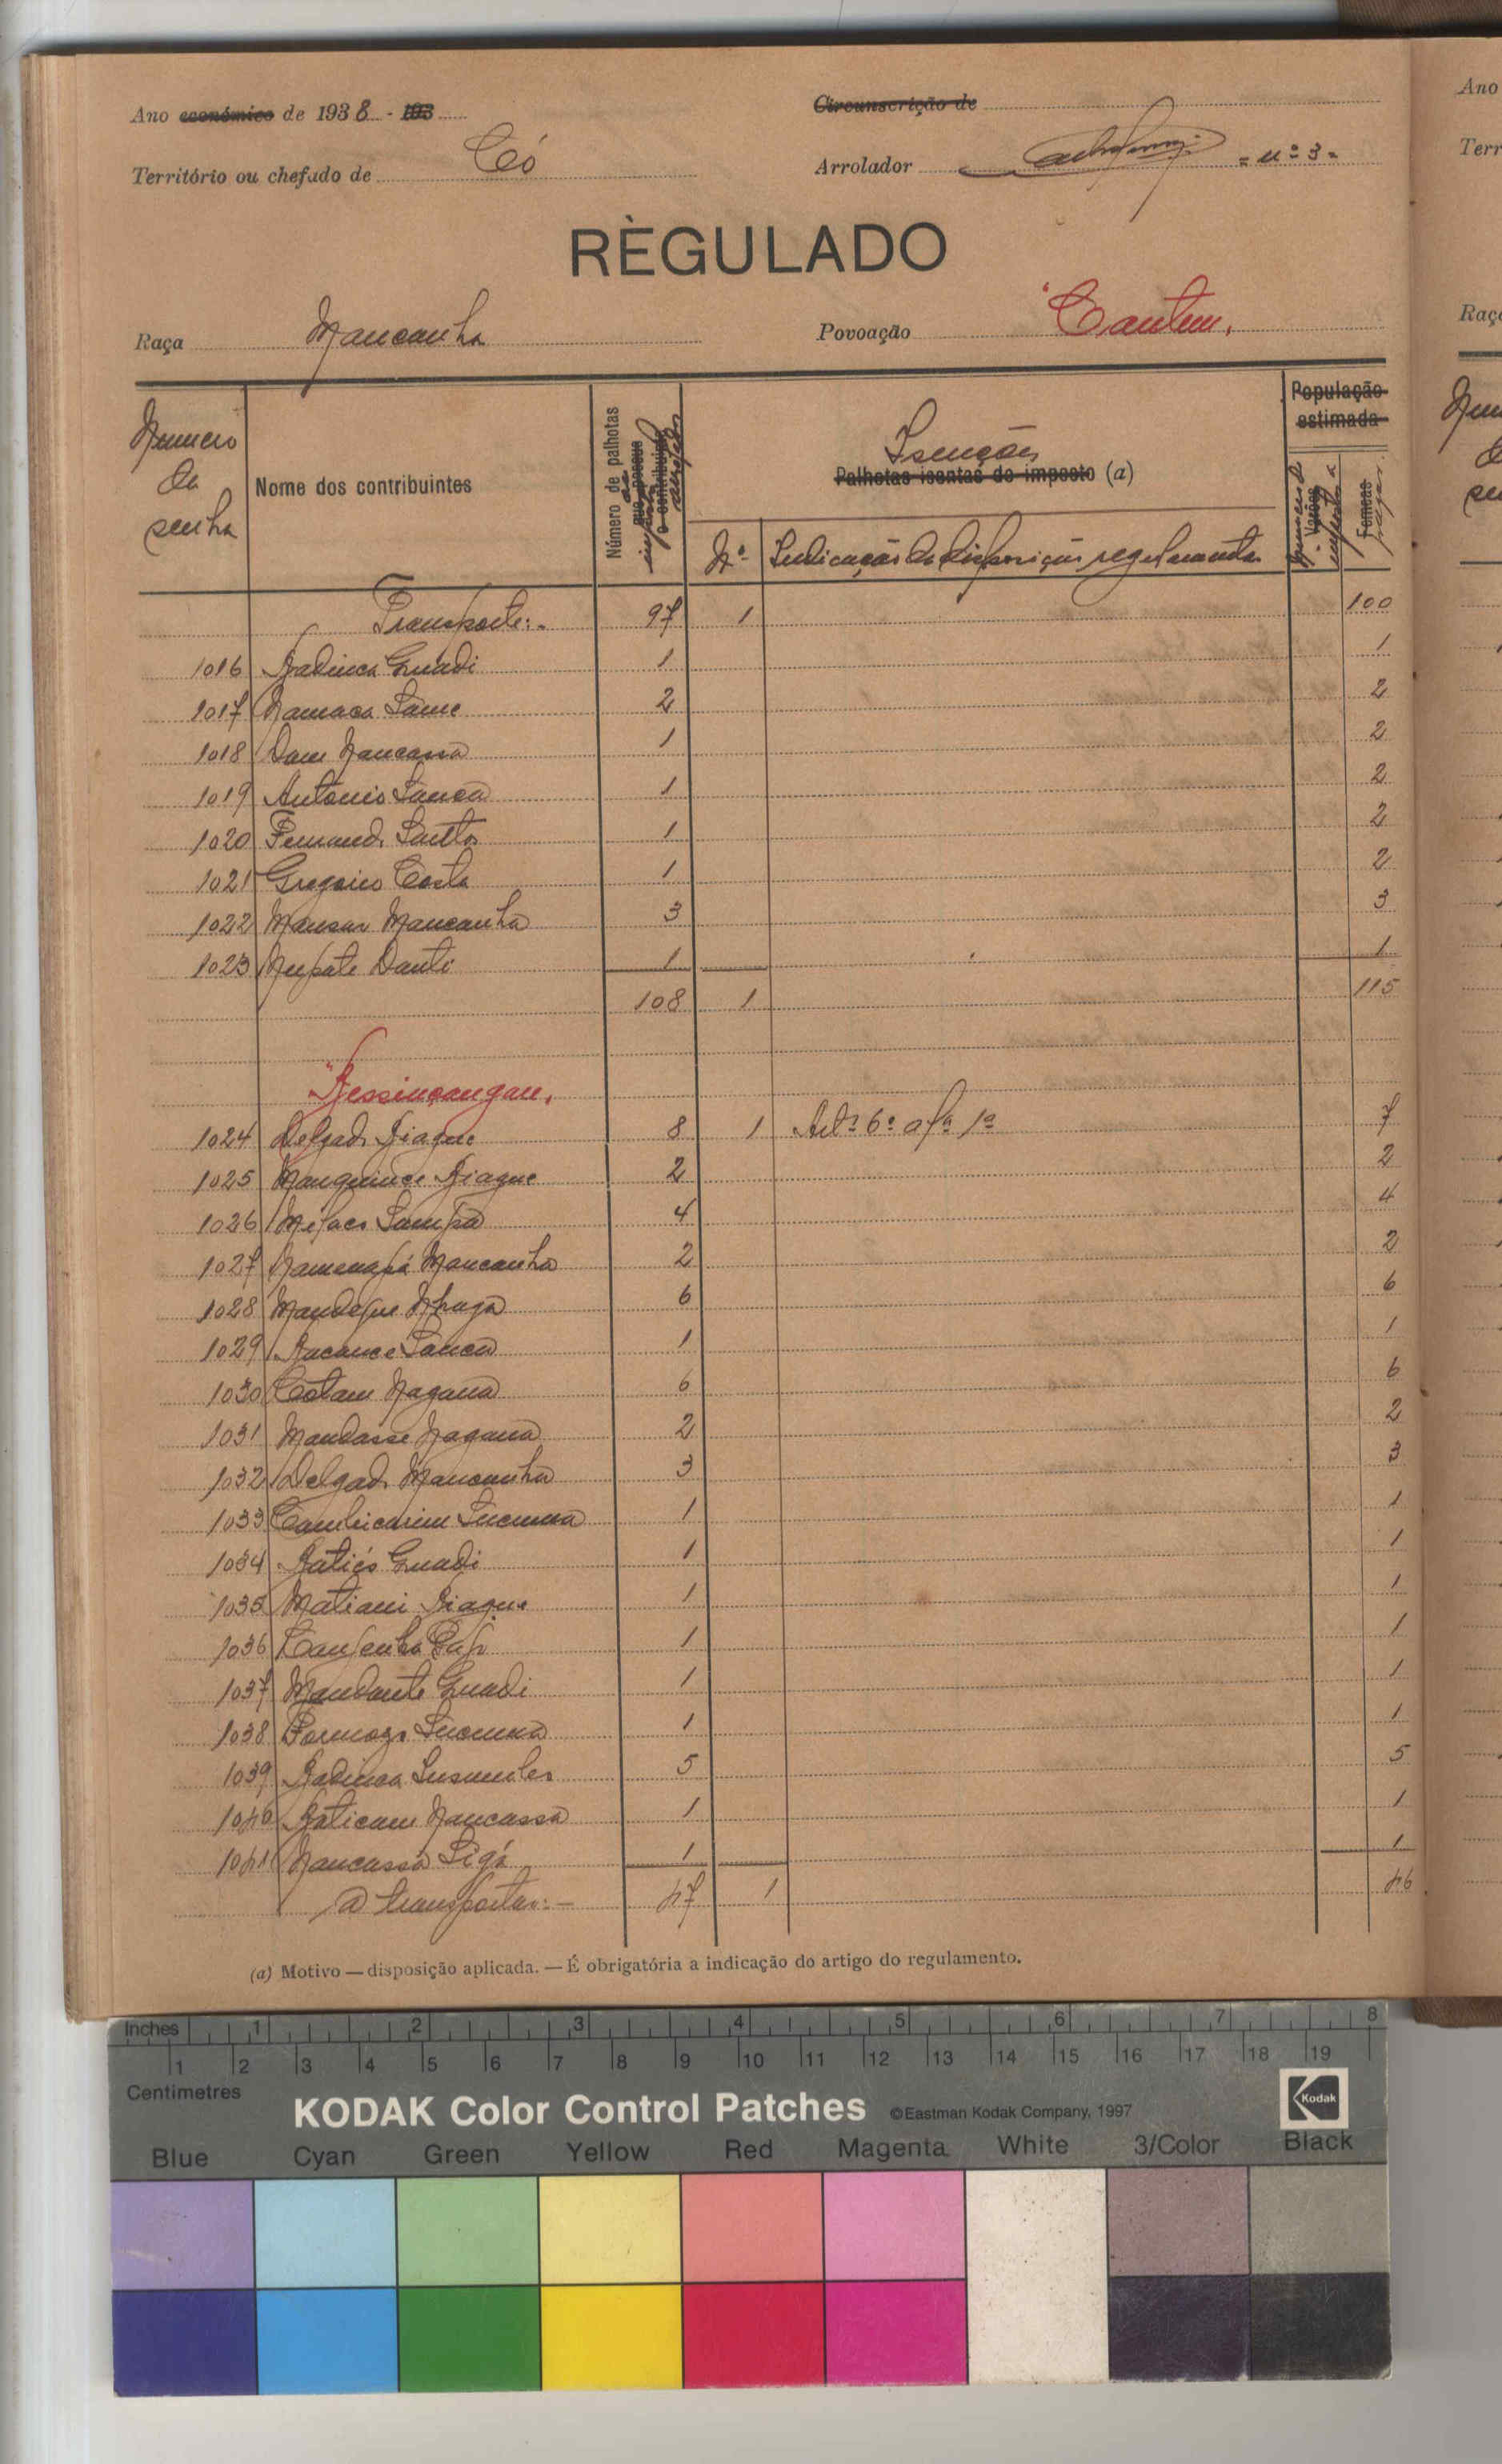 Ano económico de 1938 - 193
Circunscrição de
Território ou chefado de Có
Arrolador = nº 3 =
RÈGULADO
Raça Mancanha
Povoação "Cantum"
Numero da senha
Nome dos contribuintes
Número de palhotas que possue o contribuinte
Isenções
Palhotas isentas do imposto (a)
Nº
Indicação da disposição regulamentar
População estimada
Varões
Femeas
Transporte:- 97 1 100
1016 Badinca Guadi 1 1
1017 Namaca Same 2 2
1018 Dam Nancassa 1 2
1019 António Sanca 1 2
1020 Fernando Santos 1 2
1021 Gregorio Costa 1 2
1022 Mansur Mancanha 3 3
1023 Nupate Danti 1 1
108 1 115
1024 Delgado Biague 8 1 Artº 6º alª 1ª 7
1025 Manquince Biague 2 2
1026 Sampa 4 4
1027 Mancanha 2 2
1028 6 6
1029 Sanca 1 1
1030 Cotam Nagana 6 6
1031 Mandasse Nagana 2 2
1032 Delgado Mancanha 3 3
1033 1 1
1034 Guadi 1 1
1035 Matiani Biague 1 1
1036 1 1
1037 Mandante Guadi 1 1
1038 Formozo 1 1
1039 Badinca 5 5
1040 Baticam Nancassa 1 1
1041 Nancassa Sigá 1 1
A transportar:- 47 1 46
(a) Motivo — disposição aplicada. — É obrigatória a indicação do artigo do regulamento.
Inches 1 2 3 4 5 6 7 8
1 2 3 4 5 6 7 8 9 10 11 12 13 14 15 16 17 18 19
Centimetres
KODAK Color Control Patches ©Eastman Kodak Company, 1997 Kodak
Blue Cyan Green Yellow Red Magenta White 3/Color Black
Ano
Terr
Raç